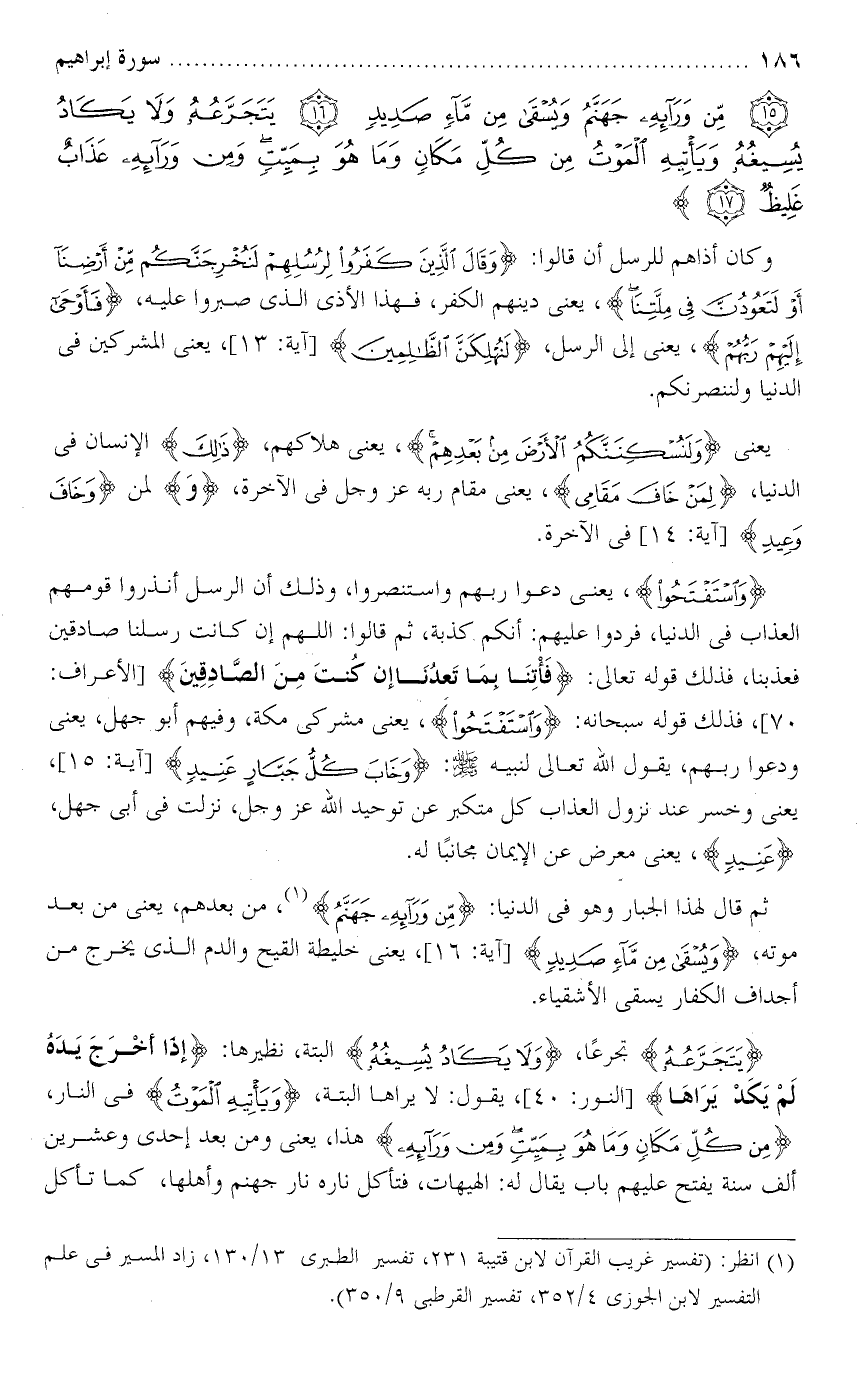 ١٨٦ ................................................................ سورة إبراهيم
﴿١٥﴾ مِّن وَرَآئِهِۦ جَهَنَّمُ وَيُسْقَىٰ مِن مَّآءٍ صَدِيدٍ ﴿١٦﴾ يَتَجَرَّعُهُۥ وَلَا يَكَادُ
يُسِيغُهُۥ وَيَأْتِيهِ ٱلْمَوْتُ مِن كُلِّ مَكَانٍ وَمَا هُوَ بِمَيِّتٍۖ وَمِن وَرَآئِهِۦ عَذَابٌ
غَلِيظٌ ﴿١٧﴾ ﴾
وكان أذاهم للرسل أن قالوا: ﴿وَقَالَ ٱلَّذِينَ كَفَرُوا۟ لِرُسُلِهِمْ لَنُخْرِجَنَّكُم مِّنْ أَرْضِنَآ
أَوْ لَتَعُودُنَّ فِى مِلَّتِنَاۖ﴾، يعنى دينهم الكفر، فهذا الأذى الذى صبروا عليه، ﴿فَأَوْحَىٰٓ
إِلَيْهِمْ رَبُّهُمْ﴾، يعنى إلى الرسل، ﴿لَنُهْلِكَنَّ ٱلظَّٰلِمِينَ﴾ [آية: ١٣]، يعنى المشركين فى
الدنيا ولننصرنكم.
يعنى ﴿وَلَنُسْكِنَنَّكُمُ ٱلْأَرْضَ مِنۢ بَعْدِهِمْۚ﴾، يعنى هلاكهم، ﴿ذَٰلِكَ﴾ الإنسان فى
الدنيا، ﴿لِمَنْ خَافَ مَقَامِى﴾، يعنى مقام ربه عز وجل فى الآخرة، ﴿وَ﴾ لمن ﴿وَخَافَ
وَعِيدِ﴾ [آية: ١٤] فى الآخرة.
﴿وَٱسْتَفْتَحُوا۟﴾، يعنى دعوا ربهم واستنصروا، وذلك أن الرسل أنذروا قومهم
العذاب فى الدنيا، فردوا عليهم: أنكم كذبة، ثم قالوا: اللهم إن كانت رسلنا صادقين
فعذبنا، فذلك قوله تعالى: ﴿فَأْتِنَا بِمَا تَعدُنَا إِن كُنتَ مِنَ الصَّادِقِينَ﴾ [الأعراف:
٧٠]، فذلك قوله سبحانه: ﴿وَٱسْتَفْتَحُوا۟﴾، يعنى مشركى مكة، وفيهم أبو جهل، يعنى
ودعوا ربهم، يقول الله تعالى لنبيه ﷺ: ﴿وَخَابَ كُلُّ جَبَّارٍ عَنِيدٍ﴾ [آية: ١٥]،
يعنى وخسر عند نزول العذاب كل متكبر عن توحيد الله عز وجل، نزلت فى أبى جهل،
﴿عَنِيدٍ﴾، يعنى معرض عن الإيمان مجانبًا له.
ثم قال لهذا الجبار وهو فى الدنيا: ﴿مِّن وَرَآئِهِۦ جَهَنَّمُ﴾(١)، من بعدهم، يعنى من بعد
موته، ﴿وَيُسْقَىٰ مِن مَّآءٍ صَدِيدٍ﴾ [آية: ١٦]، يعنى خليطة القيح والدم الذى يخرج من
أجداف الكفار يسقى الأشقياء.
﴿يَتَجَرَّعُهُۥ﴾ تجرعًا، ﴿وَلَا يَكَادُ يُسِيغُهُۥ﴾ البتة، نظيرها: ﴿إذَا أَخْرَجَ يَدَهُ
لَمْ يَكَدْ يَرَاهَا﴾ [النور: ٤٠]، يقول: لا يراها البتة، ﴿وَيَأْتِيهِ ٱلْمَوْتُ﴾ فى النار،
﴿مِن كُلِّ مَكَانٍ وَمَا هُوَ بِمَيِّتٍۖ وَمِن وَرَآئِهِۦ﴾ هذا، يعنى ومن بعد إحدى وعشرين
ألف سنة يفتح عليهم باب يقال له: الهيهات، فتأكل ناره نار جهنم وأهلها، كما تأكل
(١) انظر: (تفسير غريب القرآن لابن قتيبة ٢٣١، تفسير الطبرى ١٣٠/١٣، زاد المسير فى علم
التفسير لابن الجوزى ٣٥٢/٤، تفسير القرطبى ٣٥٠/٩).